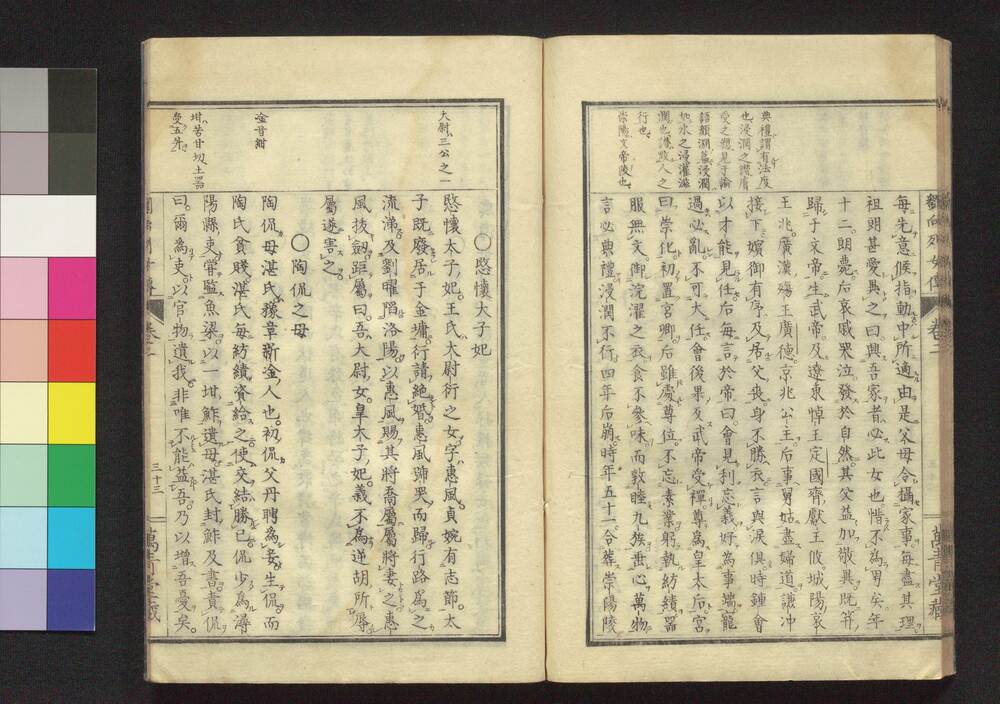 典禮謂有法度
也浸潤之譖膚
受之愬見于論
語顏淵篇浸潤
如水之浸灌滋
潤也譖毀人之
行也
崇陽文帝陵也
劉向列女傳
卷二
萬青堂藏
每先意候指動中所適由是父母令攝家事每盡其理
祖朗甚愛異之曰興吾家者必此女也惜不為男矣年
十二朗薨后哀戚哭泣發於自然其父益加敬異既筓
歸于文帝生武帝及遼東悼王定國齊獻王攸城陽哀
王兆廣漢殤王廣德京兆公主后事舅姑盡婦道謙冲
接下嬪御有序及居父喪身不勝衣言與淚俱時鍾會
以才能見任后每言於帝曰會見利忘義好為事端寵
過必亂不可大任會後果反武帝受禪尊為皇太后宮
曰崇化初置宮卿后雖處尊位不忘素業躬執紡績器
服無文御浣濯之衣食不參味而敦睦九族垂心萬物
言必典禮浸潤不行四年后崩時年五十一合葬崇陽陵
大尉三公之一
淦音紺
坩苦甘切土器
受五升
〇愍懷太子妃
愍懷太子妃王氏大尉衍之女字惠風貞婉有志節太
子既廢居于金墉衍請絕婚惠風號哭而歸行路為之
流涕及劉曜陷洛陽以惠風賜其將喬屬屬將妻之惠
風拔劍距屬曰吾大尉女皇太子妃義不為逆胡所辱
屬遂害之
〇陶侃之母
陶侃母湛氏豫章新淦人也初侃父丹聘為妾生侃而
陶氏貧賤湛氏每紡績資給之使交結勝己侃少為潯
陽縣吏嘗監魚梁以一坩鮓遺母湛氏封鮓及書責侃
曰爾為吏以官物遺我非唯不能益吾乃以增吾憂矣
卷二
三十三
萬青堂藏